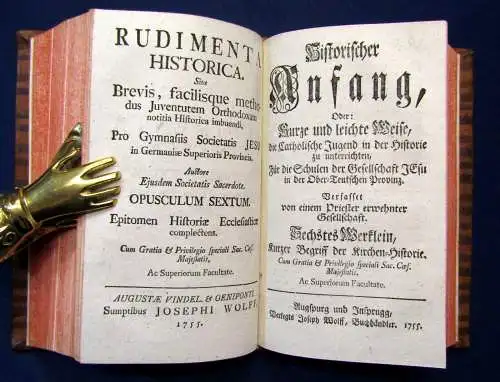 RUDIMENTA
HISTORICA.
Sive
Brevis, facilisque metho-
dus Juventutem Orthodoxam
notitia Historica imbuendi,
Pro Gymnasiis Societatis JESU
in Germaniæ Superioris Provincia.
Auctore
Ejusdem Societatis Sacerdote.
OPUSCULUM SEXTUM.
Epitomen Historiæ Ecclesiasticæ
complectens.
Cum Gratia & Privilegio speciali Sac. Cæs.
Majestatis,
Ac Superiorum Facultate.
AUGUSTÆ VINDEL. & OENIPONTI.
Sumptibus JOSEPHI WOLFF
1755.
Historischer
Anfang,
Oder:
Kurze und leichte Weise,
die Catholische Jugend in der Historie
zu unterrichten,
Für die Schulen der Gesellschaft JEsu
in der Ober-Teutschen Provinz.
Verfasset
von einem Priester erwehnter
Gesellschaft.
Sechstes Werklein,
Kurzer Begriff der Kirchen-Historie.
Cum Gratia & Privilegio speciali Sac. Cæs.
Majestatis,
Ac Superiorum Facultate.
Augspurg und Insprugg,
Verlegts Joseph Wolff, Buchhändler. 1755.